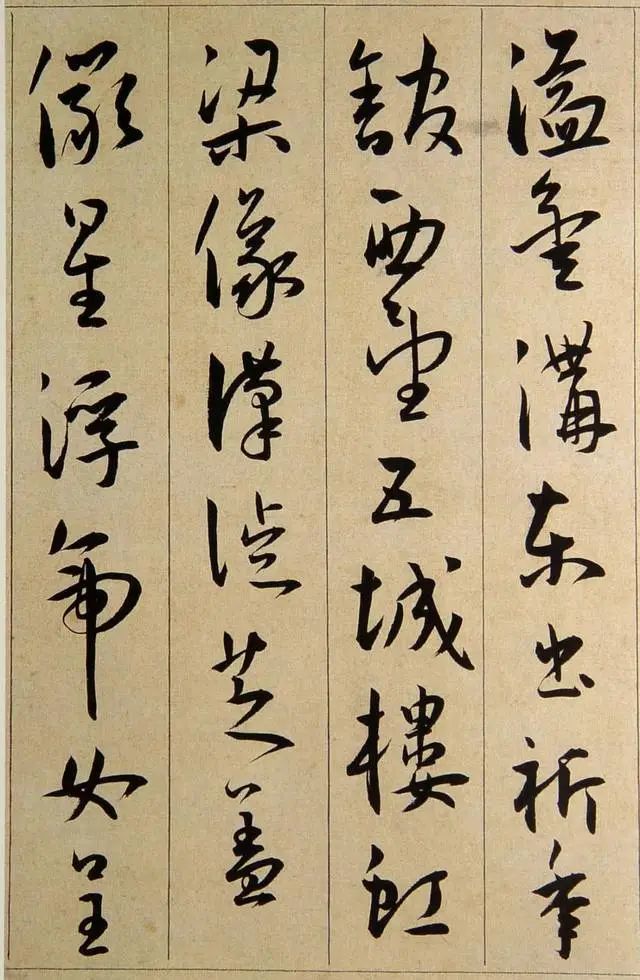 溢金溝東出祈年
舘西望五城樓虹
梁像漢徙芝蓋
儼星浮帝女呈